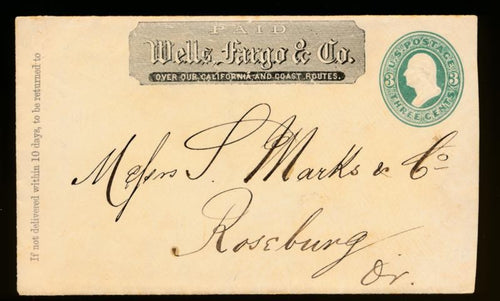 PAID
Wells, Fargo & Co.
OVER OUR CALIFORNIA AND COAST ROUTES.
U.S. POSTAGE
3 3
THREE CENTS
If not delivered within 10 days, to be returned to
Messrs S. Marks & Co
Roseburg
Or.